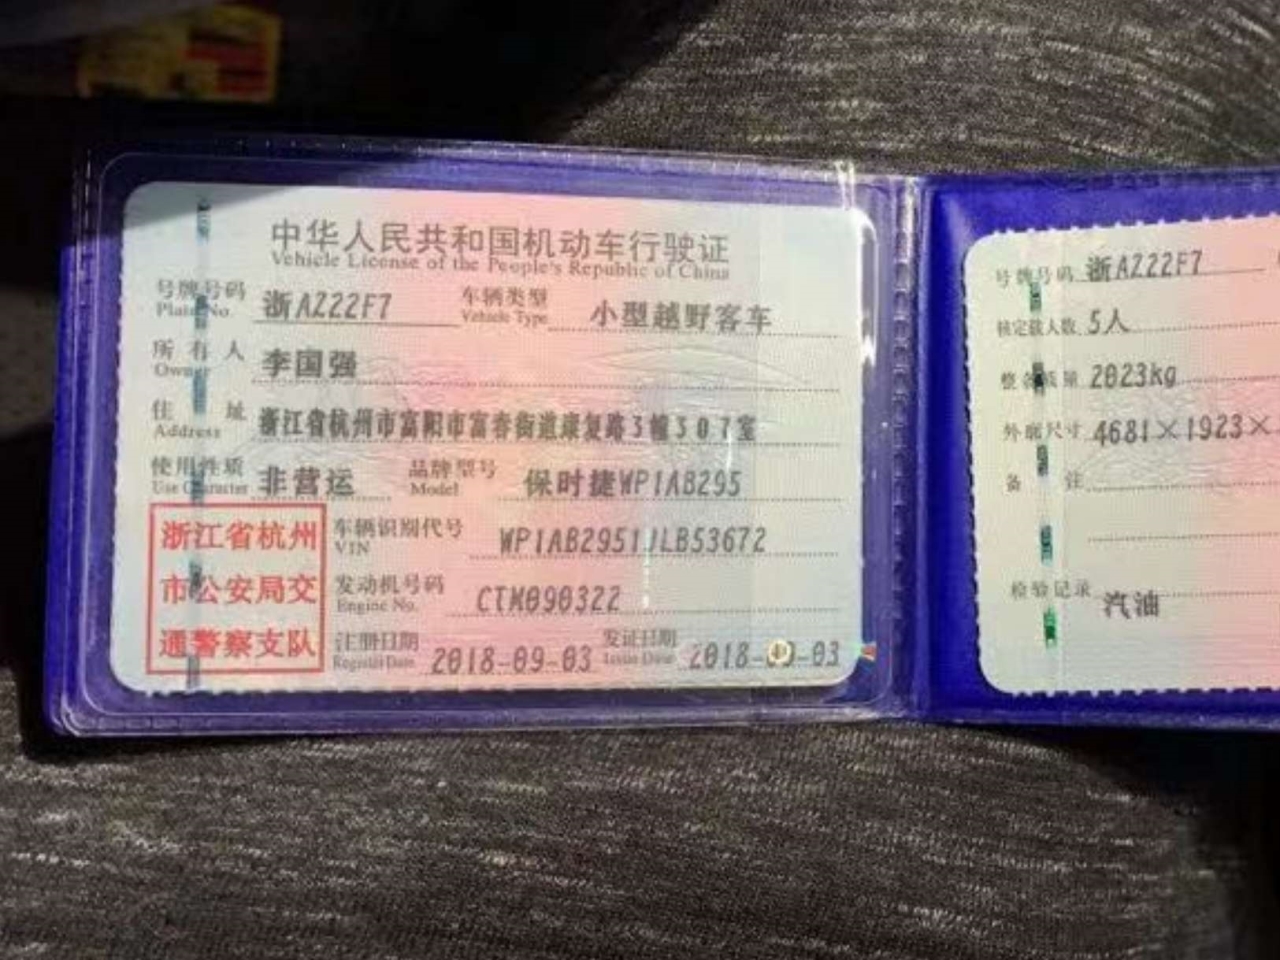 中华人民共和国机动车行驶证
Vehicle License of the People's Republic of China
号牌号码 浙AZ22F7 车辆类型 小型越野客车
Plate No. Vehicle Type
所有人 李国强
Owner
住址 浙江省杭州市富阳市富春街道康复路3幢307室
Address
使用性质 非营运 品牌型号 保时捷WP1AB295
Use Character Model
浙江省杭州
市公安局交
通警察支队
车辆识别代号 WP1AB2951JLB53672
VIN
发动机号码 CTM090322
Engine No.
注册日期 2018-09-03 发证日期 2018-09-03
Register Date Issue Date
号牌号码 浙AZ22F7
核定载人数 5人
整备质量 2023kg
外廓尺寸 4681×1923×
备注
检验记录 汽油